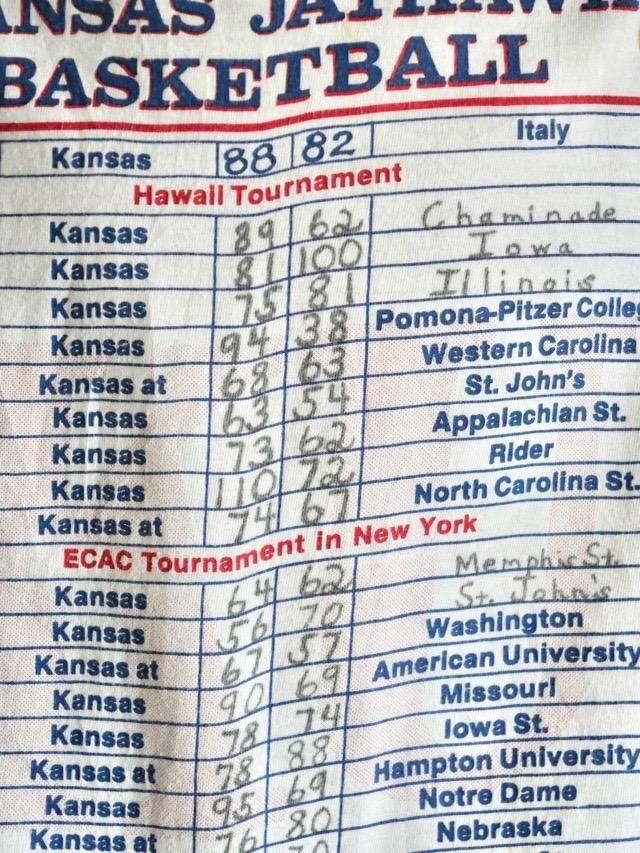 KANSAS JAYHAWK
BASKETBALL
Kansas 88 82 Italy
Hawaii Tournament
Kansas 89 62 Chaminade
Kansas 81 100 Iowa
Kansas 75 81 Illinois
Kansas 94 38 Pomona-Pitzer Colle
Kansas at 68 63 Western Carolina
Kansas 63 54 St. John's
Kansas 73 62 Appalachian St.
Kansas 110 72 Rider
Kansas at 74 67 North Carolina St.
ECAC Tournament in New York
Kansas 64 62 Memphis St.
Kansas 56 70 St. John's
Kansas at 67 57 Washington
Kansas 90 69 American University
Kansas 78 74 Missouri
Kansas at 78 88 Iowa St.
Kansas 95 69 Hampton University
Kansas at 76 80 Notre Dame
Nebraska